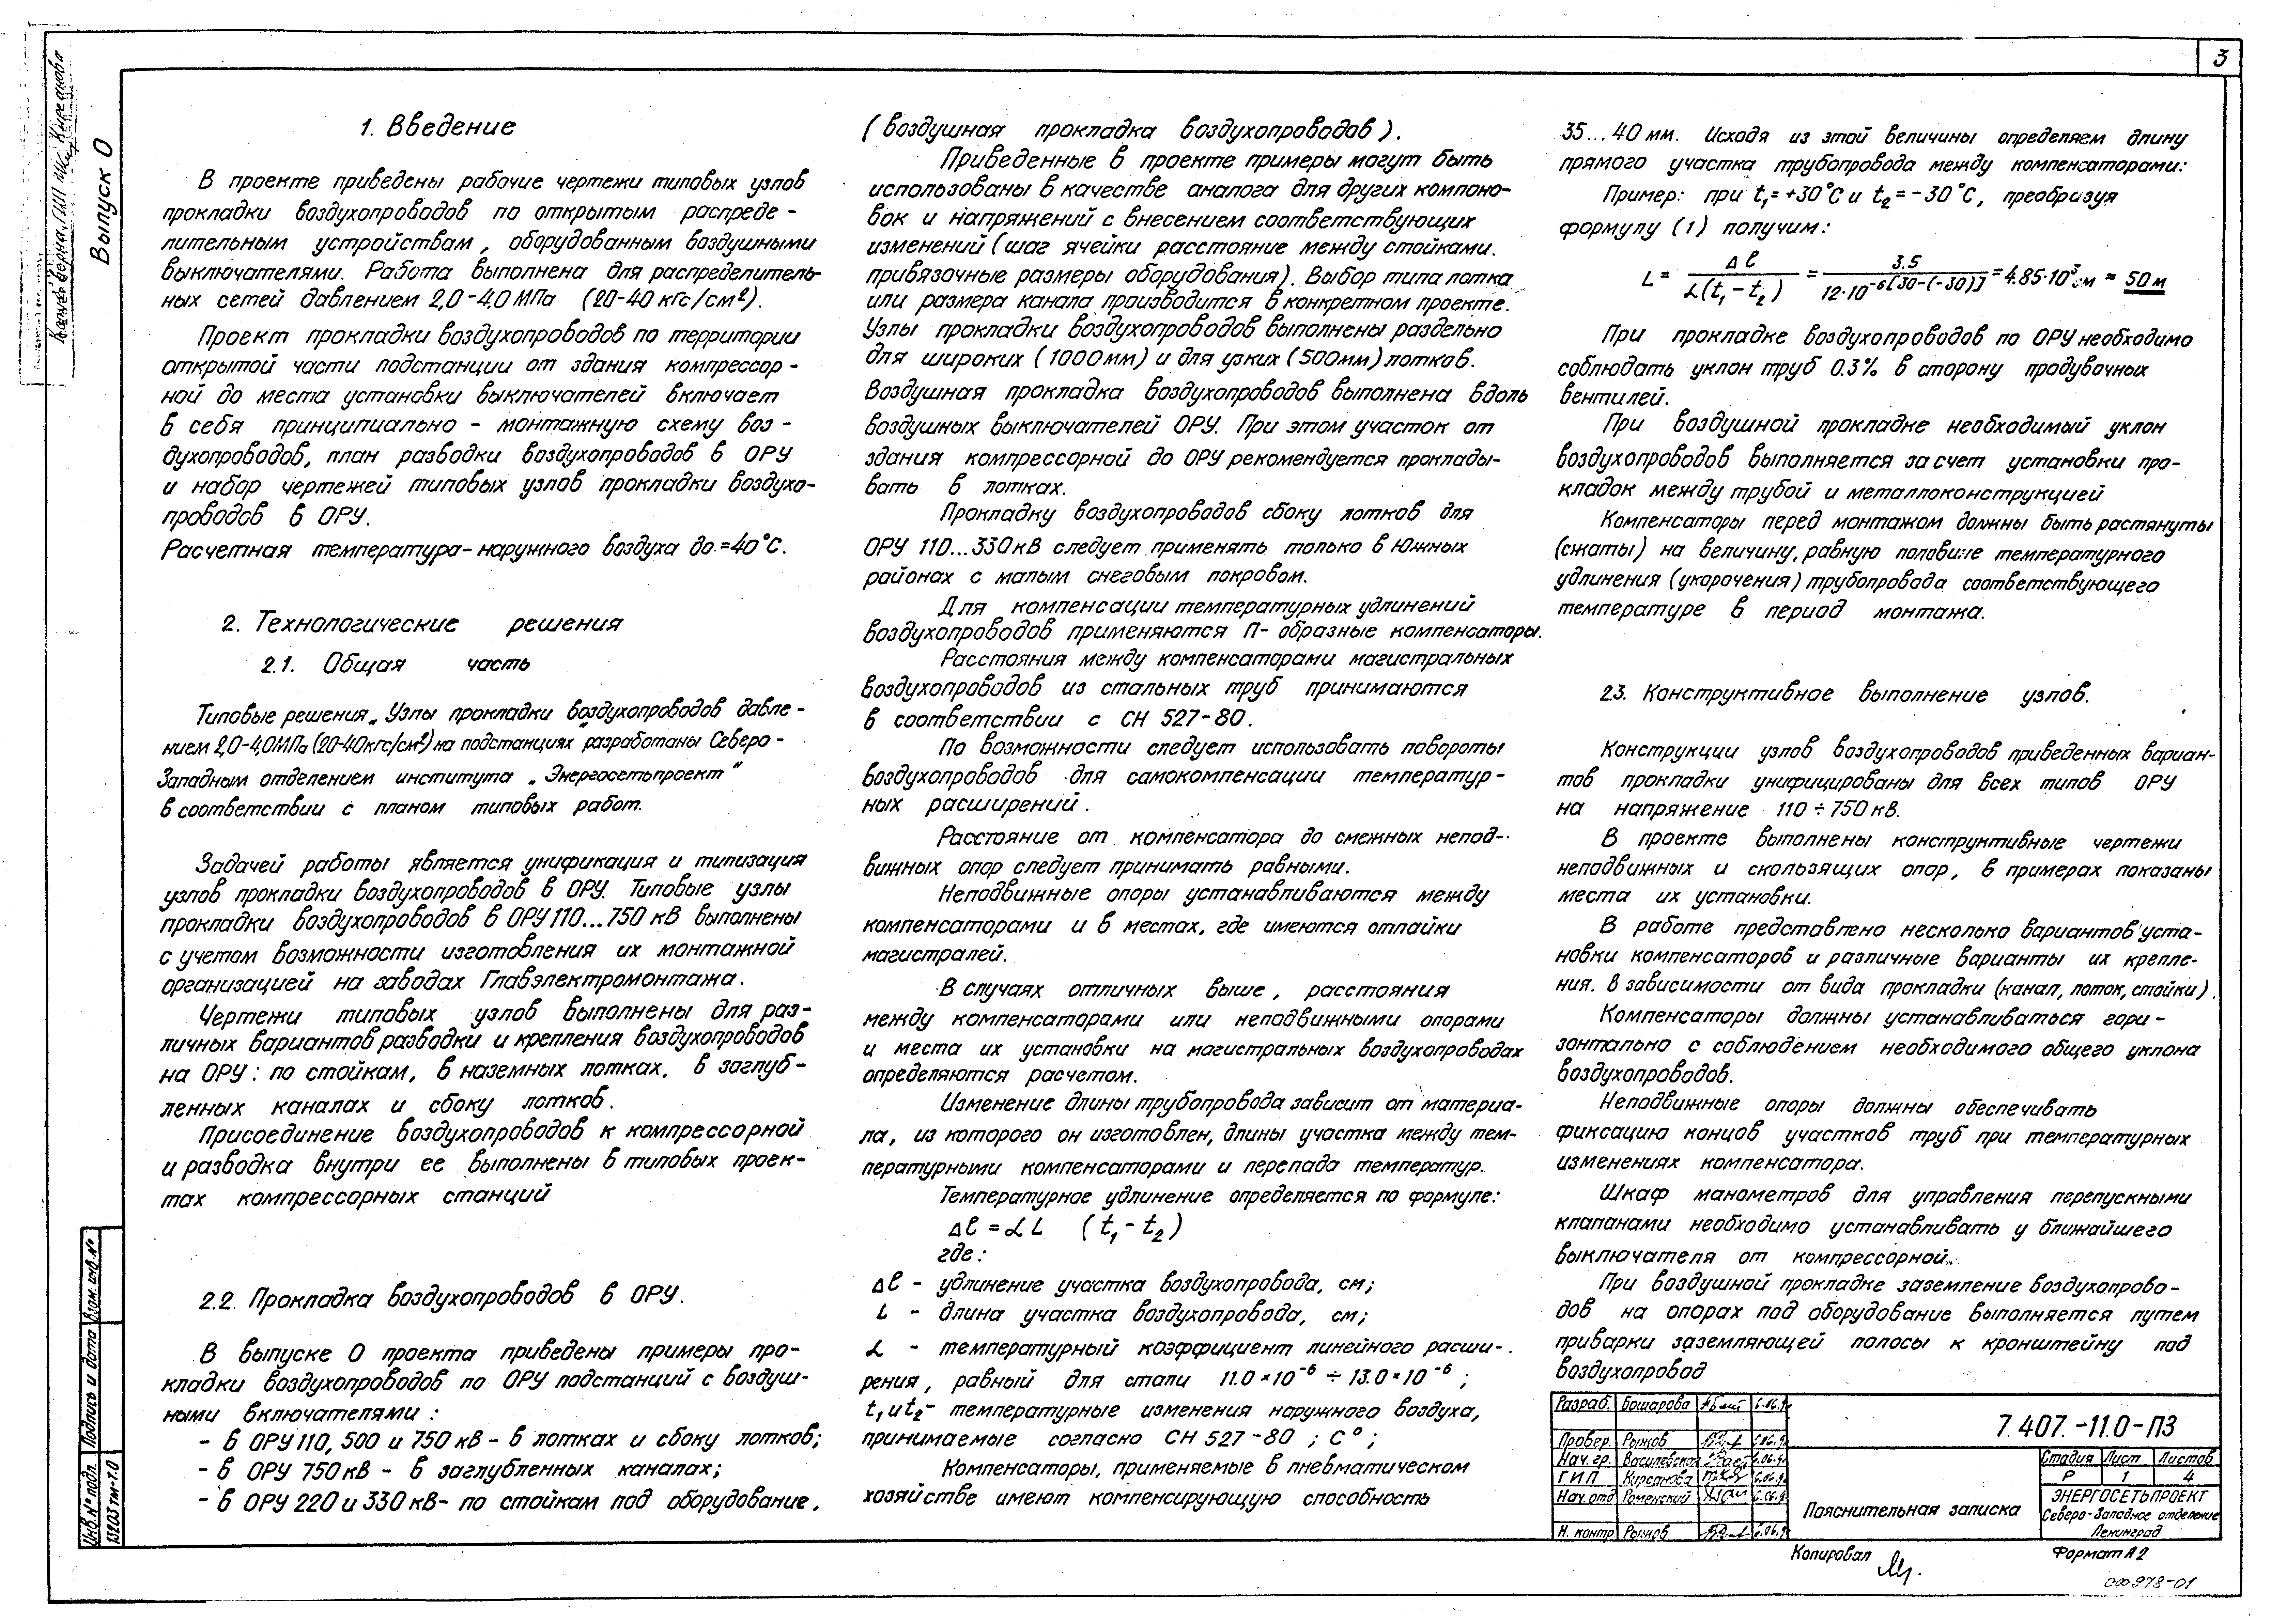 3
Выпуск 0
1. Введение
В проекте приведены рабочие чертежи типовых узлов
прокладки воздухопроводов по открытым распреде-
лительным устройствам, оборудованным воздушными
выключателями. Работа выполнена для распределитель-
ных сетей давлением 2,0-4,0 МПа (20-40 кгс/см²).
Проект прокладки воздухопроводов по территории
открытой части подстанции от здания компрессор-
ной до места установки выключателей включает
в себя принципиально - монтажную схему воз-
духопроводов, план разводки воздухопроводов в ОРУ
и набор чертежей типовых узлов прокладки воздухо-
проводов в ОРУ.
Расчетная температура - наружного воздуха до =40°С.
2. Технологические решения
2.1. Общая часть
Типовые решения „Узлы прокладки воздухопроводов давле-
нием 2,0-4,0МПа (20-40кгс/см²) на подстанциях" разработаны Северо-
Западным отделением института „Энергосетьпроект"
в соответствии с планом типовых работ.
Задачей работы является унификация и типизация
узлов прокладки воздухопроводов в ОРУ. Типовые узлы
прокладки воздухопроводов в ОРУ 110...750 кВ выполнены
с учетом возможности изготовления их монтажной
организацией на заводах Главэлектромонтажа.
Чертежи типовых узлов выполнены для раз-
личных вариантов разводки и крепления воздухопроводов
на ОРУ: по стойкам, в наземных лотках, в заглуб-
ленных каналах и сбоку лотков.
Присоединение воздухопроводов к компрессорной
и разводка внутри ее выполнены в типовых проек-
тах компрессорных станций
2.2. Прокладка воздухопроводов в ОРУ.
В выпуске 0 проекта приведены примеры про-
кладки воздухопроводов по ОРУ подстанций с воздуш-
ными включателями:
- в ОРУ 110, 500 и 750 кВ - в лотках и сбоку лотков;
- в ОРУ 750 кВ - в заглубленных каналах;
- в ОРУ 220 и 330 кВ - по стойкам под оборудование.
(воздушная прокладка воздухопроводов).
Приведенные в проекте примеры могут быть
использованы в качестве аналога для других компоно-
вок и напряжений с внесением соответствующих
изменений (шаг ячейки расстояние между стойками.
привязочные размеры оборудования). Выбор типа лотка
или размера канала производится в конкретном проекте.
Узлы прокладки воздухопроводов выполнены раздельно
для широких (1000мм) и для узких (500мм) лотков.
Воздушная прокладка воздухопроводов выполнена вдоль
воздушных выключателей ОРУ. При этом участок от
здания компрессорной до ОРУ рекомендуется проклады-
вать в лотках.
Прокладку воздухопроводов сбоку лотков для
ОРУ 110...330 кВ следует применять только в Южных
районах с малым снеговым покровом.
Для компенсации температурных удлинений
воздухопроводов применяются П-образные компенсаторы.
Расстояния между компенсаторами магистральных
воздухопроводов из стальных труб принимаются
в соответствии с СН 527-80.
По возможности следует использовать повороты
воздухопроводов для самокомпенсации температур-
ных расширений.
Расстояние от компенсатора до смежных непод-
вижных опор следует принимать равными.
Неподвижные опоры устанавливаются между
компенсаторами и в местах, где имеются отпайки
магистралей.
В случаях отличных выше, расстояния
между компенсаторами или неподвижными опорами
и места их установки на магистральных воздухопроводах
определяются расчетом.
Изменение длины трубопровода зависит от материа-
ла, из которого он изготовлен, длины участка между тем-
пературными компенсаторами и перепада температур.
Температурное удлинение определяется по формуле:
Δℓ = αL (t₁ - t₂)
где:
Δℓ - удлинение участка воздухопровода, см;
L - длина участка воздухопровода, см;
α - температурный коэффициент линейного расши-
рения, равный для стали 11.0×10⁻⁶ ÷ 13.0×10⁻⁶;
t₁ и t₂ - температурные изменения наружного воздуха,
принимаемые согласно СН 527-80; С°;
Компенсаторы, применяемые в пневматическом
хозяйстве имеют компенсирующую способность
35...40 мм. Исходя из этой величины определяем длину
прямого участка трубопровода между компенсаторами:
Пример: при t₁=+30°С и t₂=-30°С, преобразуя
формулу (1) получим:
L = Δℓ / α(t₁-t₂) = 3.5 / 12·10⁻⁶[30-(-30)] = 4.85·10³см ≈ 50 м
При прокладке воздухопроводов по ОРУ необходимо
соблюдать уклон труб 0.3% в сторону продувочных
вентилей.
При воздушной прокладке необходимый уклон
воздухопроводов выполняется за счет установки про-
кладок между трубой и металлоконструкцией
Компенсаторы перед монтажом должны быть растянуты
(сжаты) на величину, равную половине температурного
удлинения (укорочения) трубопровода соответствующего
температуре в период монтажа.
23. Конструктивное выполнение узлов.
Конструкции узлов воздухопроводов приведенных вариан-
тов прокладки унифицированы для всех типов ОРУ
на напряжение 110 ÷ 750 кВ.
В проекте выполнены конструктивные чертежи
неподвижных и скользящих опор, в примерах показаны
места их установки.
В работе представлено несколько вариантов уста-
новки компенсаторов и различные варианты их крепле-
ния. в зависимости от вида прокладки (канал, лоток, стойки).
Компенсаторы должны устанавливаться гори-
зонтально с соблюдением необходимого общего уклона
воздухопроводов.
Неподвижные опоры должны обеспечивать
фиксацию концов участков труб при температурных
изменениях компенсатора.
Шкаф манометров для управления перепускными
клапанами необходимо устанавливать у ближайшего
выключателя от компрессорной.
При воздушной прокладке заземление воздухопрово-
дов на опорах под оборудование выполняется путем
приварки заземляющей полосы к кронштейну под
воздухопровод
Разраб. Башарова
Провер. Рыжов
Нач. гр. Василевская
ГИП Кирсанова
Нач. отд Роменский
Н. контр Рыжов
7.407.-11.0-ПЗ
Пояснительная записка
Стадия Лист Листов
Р 1 4
ЭНЕРГОСЕТЬПРОЕКТ
Северо-Западное отделение
Ленинград
Копировал
Формат А2
сф 978-01
Инв.№ подл. Подпись и дата Взам. инв.№
13203тм-т.0